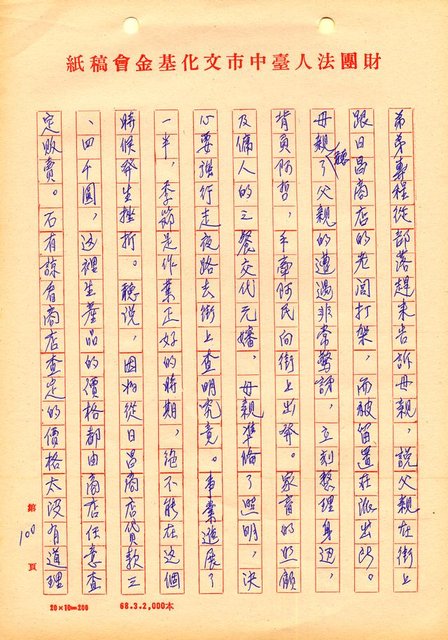 財團法人臺中市文化基金會稿紙
弟弟專程從部落趕來告訴母親，說父親在街上
跟日昌商店的老闆打架，而被留置在派出所。
母親聽了父親的遭遇非常驚訝，立刻整理身邊，
背負阿哲，手牽阿民向街上出發。家畜的照顧
及傭人的三餐交代元嬸，母親準備了照明，決
心要強行走夜路去街上查明究竟。事業進展了
一半，季節是作業正好的時期，絕不能在這個
時候發生挫折。聽說，因為從日昌商店貸款三
、四千圓，這裡生產品的價格都由商店任意查
定販賣。石有諒看商店查定的價格太沒有道理
第100頁
20×10=200
68.3.2,000本